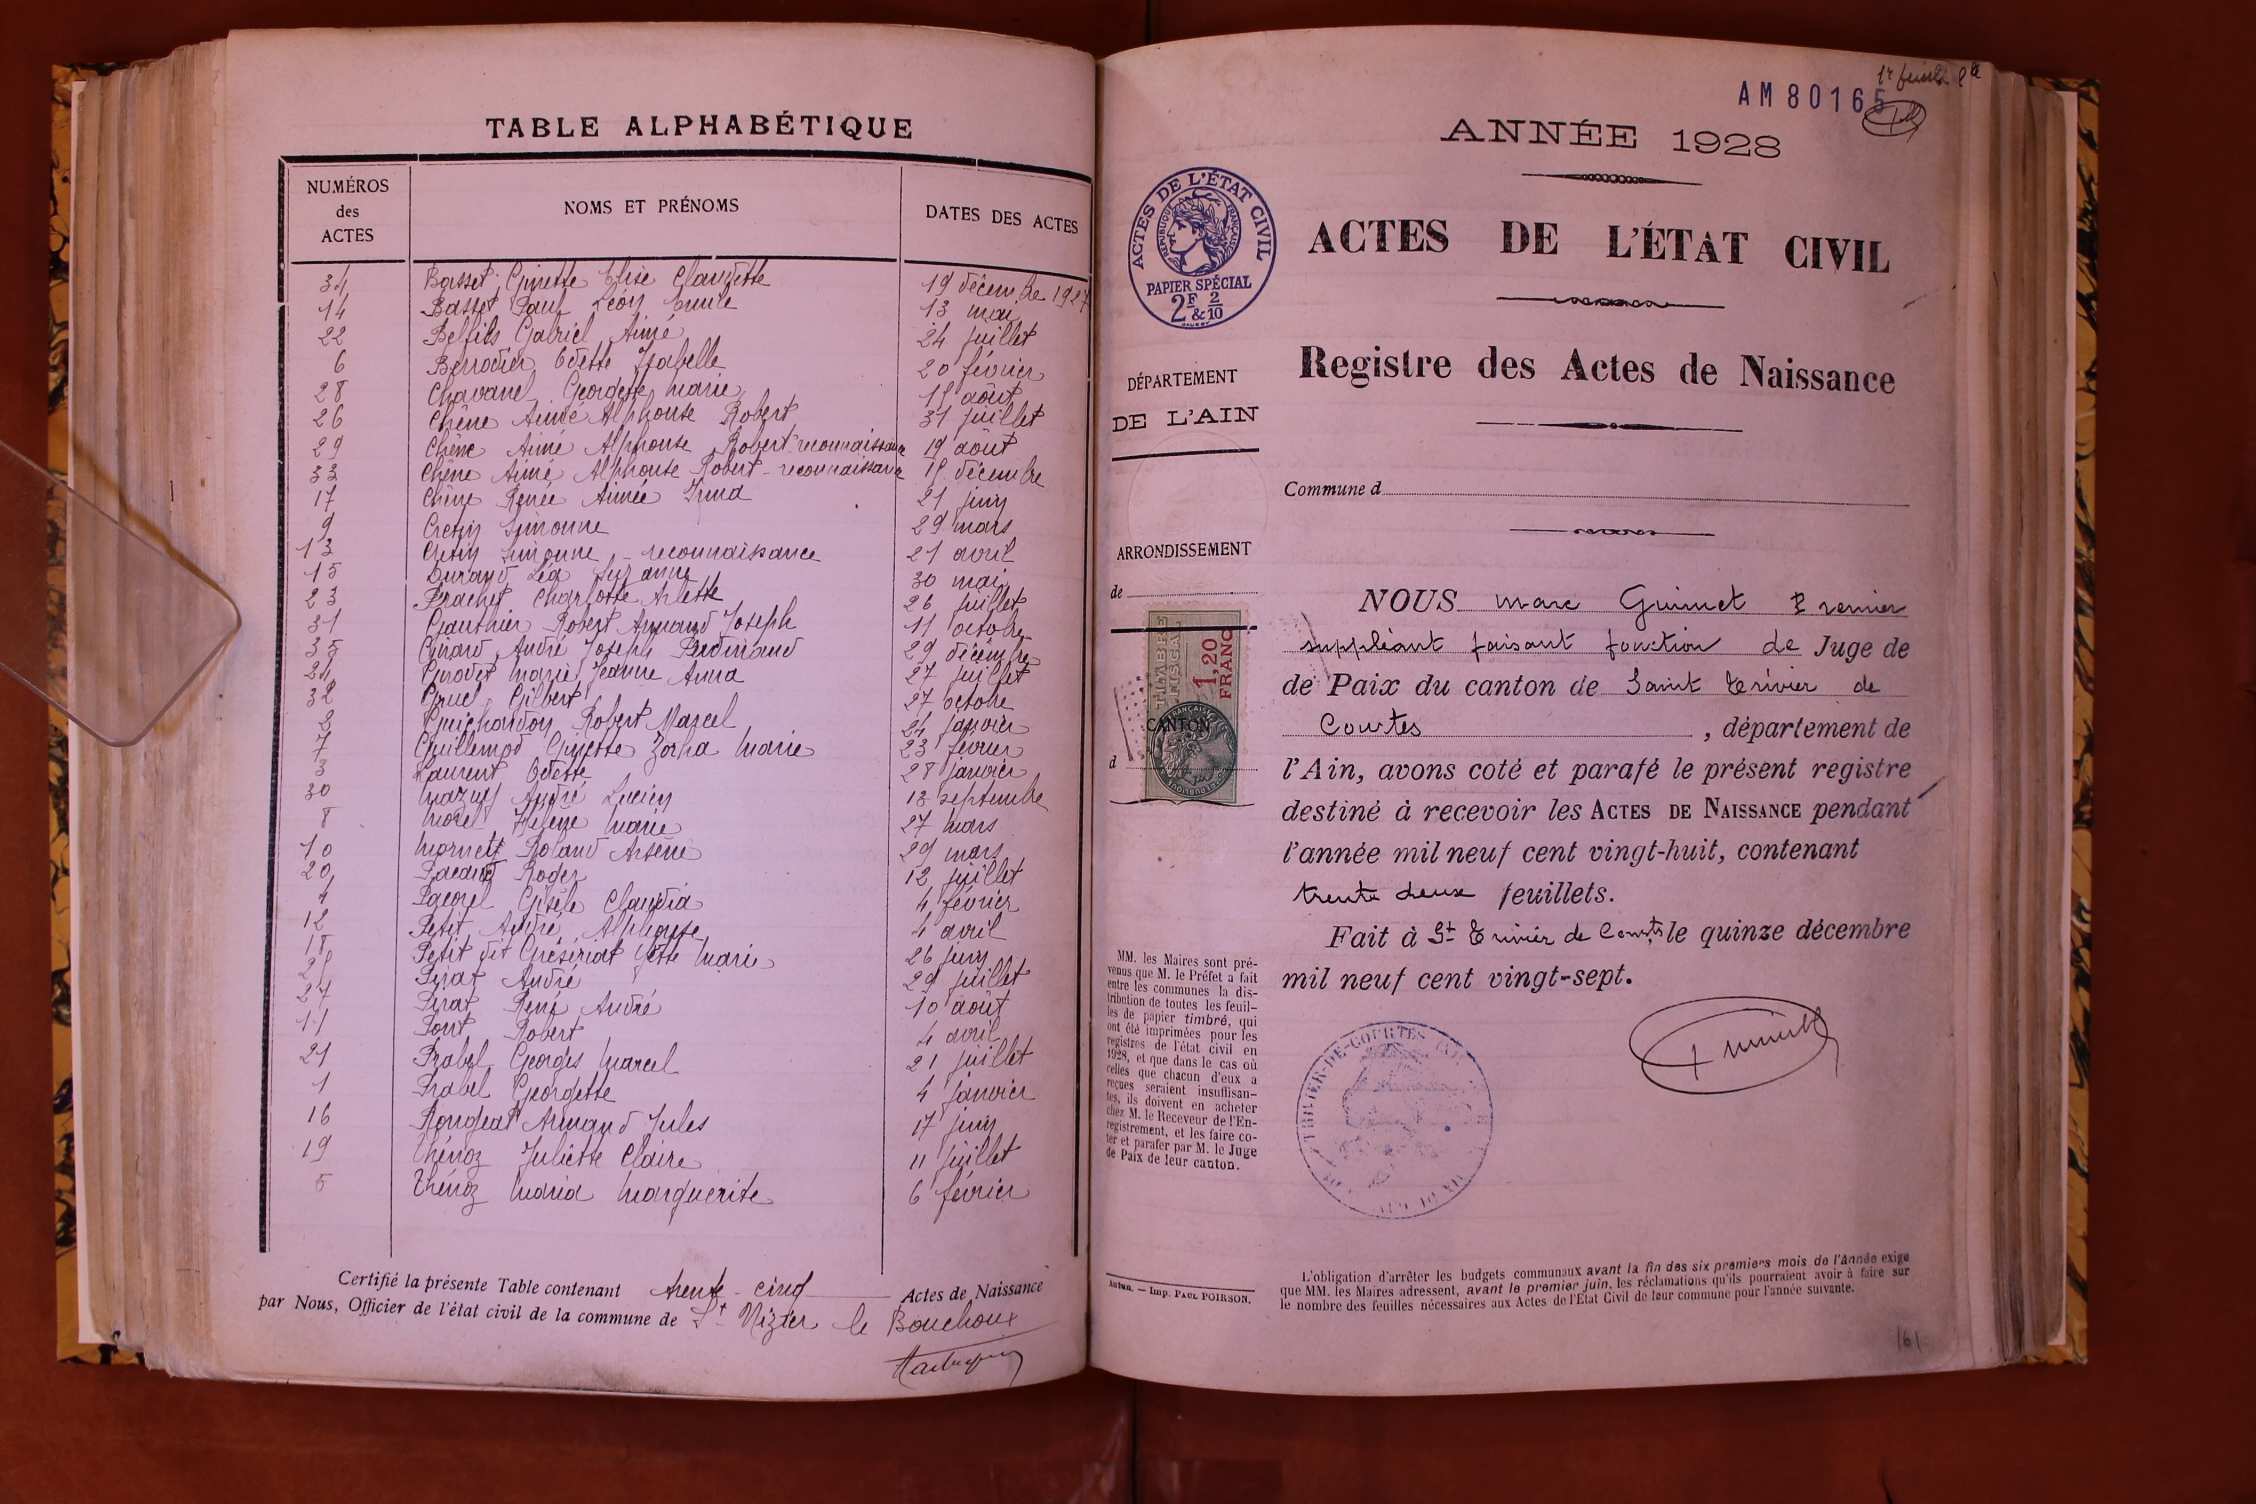 TABLE ALPHABÉTIQUE
NUMÉROS des ACTES NOMS ET PRÉNOMS DATES DES ACTES
34 Basset Ginette Elise Claudette 19 décembre 1927
14 Basset Paul Léon Emile 13 mai
22 Belfils Gabriel Aimé 24 juillet
6 Berrodier Odette Isabelle 20 février
28 Chavanel Georgette Marie 18 août
26 Chêne Aimé Alphonse Robert 31 juillet
29 Chêne Aimé Alphonse Robert reconnaissance 19 août
33 Chêne Aimé Alphonse Robert - reconnaissance 18 décembre
17 Chêne Renée Aimée Irma 21 juin
9 Cretin Simonne 29 mars
13 Cretin Simonne - reconnaissance 21 avril
15 Durand Léa Suzanne 30 mai
23 Frachet Charlotte Arlette 26 juillet
31 Gauthier Robert Armand Joseph 11 octobre
35 Girard André Joseph Ferdinand 29 décembre
24 Girodet Marie Jeanne Anna 27 juillet
32 Gruel Gilbert 27 octobre
2 Guichardon Robert Marcel 24 janvier
7 Guillemod Ginette Zorha Marie 23 février
3 Laurent Odette 28 janvier
30 Mazuy André Lucien 13 septembre
8 Morel Hélène Marie 27 mars
10 Mornetz Roland Arsène 29 mars
20 Pacaud Roger 12 juillet
4 Pacorel Gisèle Claudia 4 février
12 Petit André Alphonse 4 avril
18 Petit dit Grésériat Yette Marie 26 juin
25 Pirat André 29 juillet
27 Pirat René André 10 août
11 Pont Robert 4 avril
21 Prabel Georges Marcel 21 juillet
1 Prabel Georgette 4 janvier
16 Rongeat Armand Jules 17 juin
19 Thénoz Juliette Claire 11 juillet
5 Thénoz Maria Marguerite 6 février
Certifié la présente Table contenant trente-cinq Actes de Naissance
par Nous, Officier de l'état civil de la commune de St Nizier le Bouchoux
1r feuillet
AM 80165
ANNÉE 1928
ACTES DE L'ÉTAT CIVIL
RÉPUBLIQUE FRANÇAISE
PAPIER SPÉCIAL
2F & 2/10
ACTES DE L'ÉTAT CIVIL
Registre des Actes de Naissance
DÉPARTEMENT
DE L'AIN
Commune d
ARRONDISSEMENT
de
TIMBRE FISCAL
1,20 FRANC
CANTON
d
NOUS Marc Guimet Premier
suppléant faisant fonction de Juge de
de Paix du canton de Saint Trivier de
Courtes , département de
l'Ain, avons coté et parafé le présent registre
destiné à recevoir les ACTES DE NAISSANCE pendant
l'année mil neuf cent vingt-huit, contenant
trente deux feuillets.
Fait à St Trivier de Courtes le quinze décembre
mil neuf cent vingt-sept.
MM. les Maires sont pré-
venus que M. le Préfet a fait
entre les communes la dis-
tribution de toutes les feuil-
les de papier timbré, qui
ont été imprimées pour les
registres de l'état civil en
1928, et que dans le cas où
celles que chacun d'eux a
reçues seraient insuffisan-
tes, ils doivent en acheter
chez M. le Receveur de l'En-
registrement, et les faire co-
ter et parafer par M. le Juge
de Paix de leur canton.
Autun. — Imp. PAUL POIRSON.
L'obligation d'arrêter les budgets communaux avant la fin des six premiers mois de l'année exige
que MM. les Maires adressent, avant le premier juin, les réclamations qu'ils pourraient avoir à faire sur
le nombre des feuilles nécessaires aux Actes de l'Etat Civil de leur commune pour l'année suivante.
161